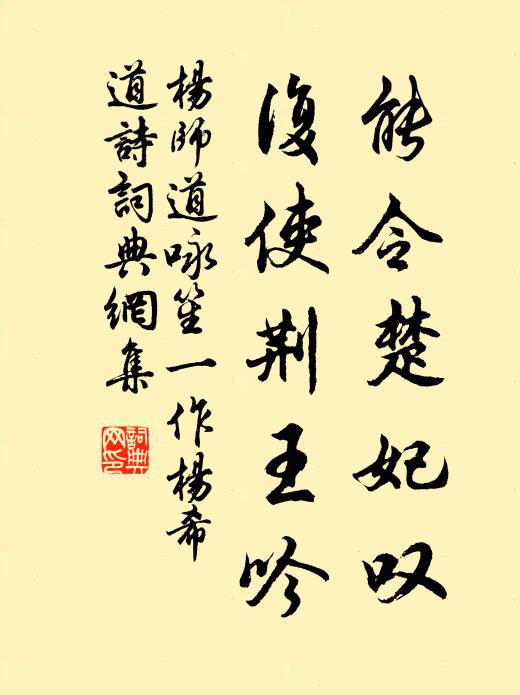 能令楚妃叹
復使荆王吟
楊師道咏笙一作楊希
道詩詞典網集
詞典
网印